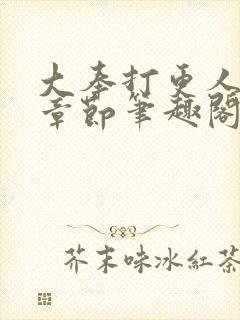 大奉打更人
章節筆趣閣
芥末味冰紅茶